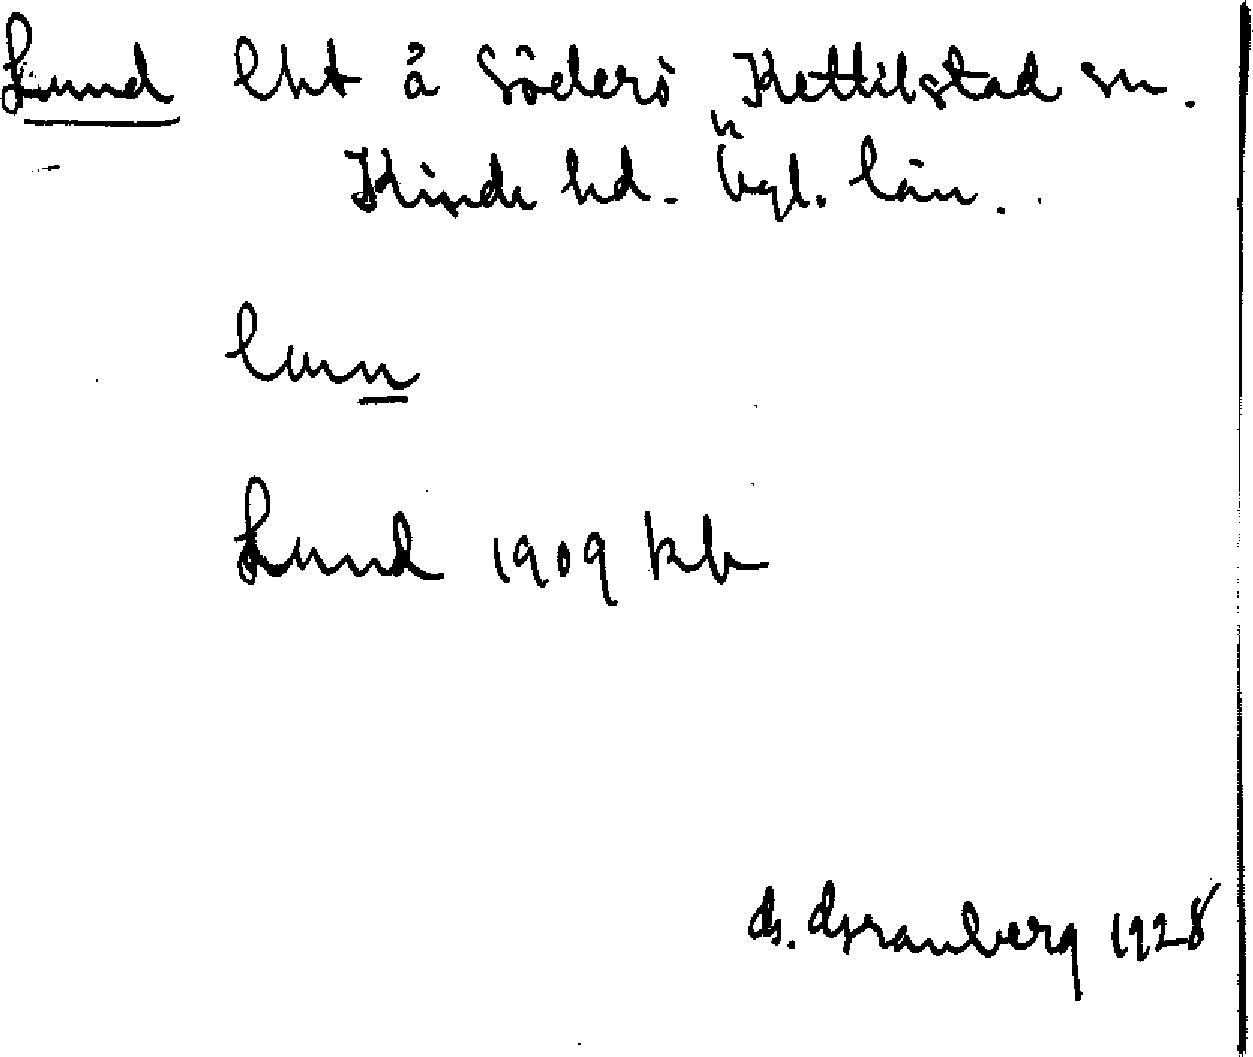 Lund lht å Söderö Kettilstad sn.
Kinda hd. Ögl. län.
lun
Lund 1909 kb
G. Granberg 1928